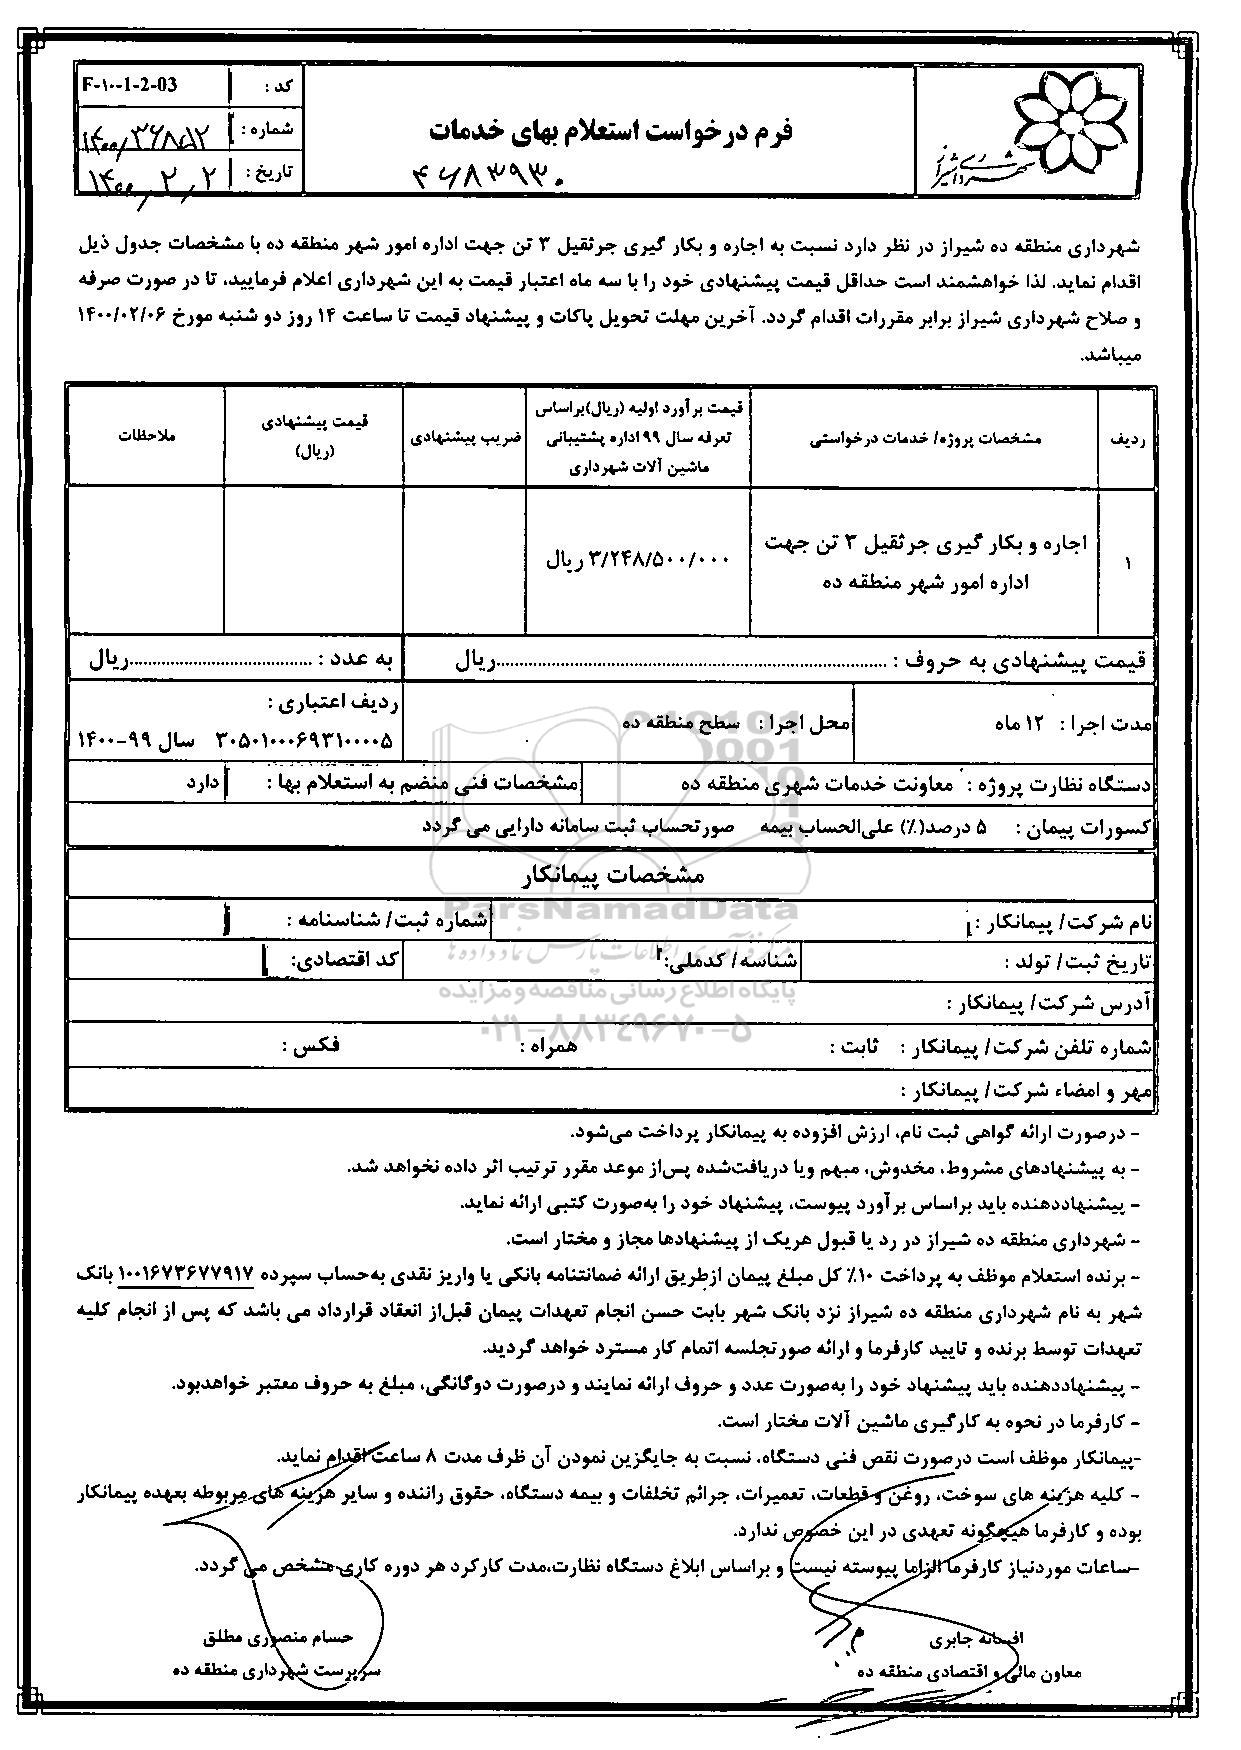 شهرداری شیراز
فرم درخواست استعلام بهای خدمات
۴۶۸۳۹۳۰
کد : F-۱۰-1-2-03
شماره : ۱۴۰۰/۳۶۸۵۱۲
تاریخ : ۱۴۰۰/۲/۲
شهرداری منطقه ده شیراز در نظر دارد نسبت به اجاره و بکار گیری جرثقیل ۳ تن جهت اداره امور شهر منطقه ده با مشخصات جدول ذیل
اقدام نماید. لذا خواهشمند است حداقل قیمت پیشنهادی خود را با سه ماه اعتبار قیمت به این شهرداری اعلام فرمایید، تا در صورت صرفه
و صلاح شهرداری شیراز برابر مقررات اقدام گردد. آخرین مهلت تحویل پاکات و پیشنهاد قیمت تا ساعت ۱۴ روز دو شنبه مورخ ۱۴۰۰/۰۲/۰۶
میباشد.
ردیف
مشخصات پروژه/ خدمات درخواستی
قیمت برآورد اولیه (ریال)براساس
تعرفه سال ۹۹ اداره پشتیبانی
ماشین آلات شهرداری
ضریب پیشنهادی
قیمت پیشنهادی
(ریال)
ملاحظات
۱
اجاره و بکار گیری جرثقیل ۳ تن جهت
اداره امور شهر منطقه ده
۳/۲۴۸/۵۰۰/۰۰۰ ریال
قیمت پیشنهادی به حروف : ........................................ریال
به عدد : ........................................ریال
مدت اجرا : ۱۲ ماه
محل اجرا : سطح منطقه ده
ردیف اعتباری :
۳۰۵۰۱۰۰۰۶۹۳۱۰۰۰۰۵ سال ۹۹-۱۴۰۰
دستگاه نظارت پروژه : معاونت خدمات شهری منطقه ده
مشخصات فنی منضم به استعلام بها : دارد
کسورات پیمان : ۵ درصد(٪) علی‌الحساب بیمه صورتحساب ثبت سامانه دارایی می گردد
مشخصات پیمانکار
ParsNamadData
نام شرکت/ پیمانکار :
شماره ثبت/ شناسنامه :
تاریخ ثبت/ تولد :
شناسه/ کدملی:
کد اقتصادی:
پایگاه اطلاع رسانی مناقصه و مزایده
آدرس شرکت/ پیمانکار :
۰۲۱-۸۸۳۴۹۶۷۰-۵
شماره تلفن شرکت/ پیمانکار : ثابت : همراه : فکس :
مهر و امضاء شرکت/ پیمانکار :
- درصورت ارائه گواهی ثبت نام، ارزش افزوده به پیمانکار پرداخت می‌شود.
- به پیشنهادهای مشروط، مخدوش، مبهم ویا دریافت‌شده پس‌از موعد مقرر ترتیب اثر داده نخواهد شد.
- پیشنهاددهنده باید براساس برآورد پیوست، پیشنهاد خود را به‌صورت کتبی ارائه نماید.
- شهرداری منطقه ده شیراز در رد یا قبول هریک از پیشنهادها مجاز و مختار است.
- برنده استعلام موظف به پرداخت ۱۰٪ کل مبلغ پیمان ازطریق ارائه ضمانتنامه بانکی یا واریز نقدی به‌حساب سپرده ۱۰۰۱۶۷۳۶۷۷۹۱۷ بانک
شهر به نام شهرداری منطقه ده شیراز نزد بانک شهر بابت حسن انجام تعهدات پیمان قبل‌از انعقاد قرارداد می باشد که پس از انجام کلیه
تعهدات توسط برنده و تایید کارفرما و ارائه صورتجلسه اتمام کار مسترد خواهد گردید.
- پیشنهاددهنده باید پیشنهاد خود را به‌صورت عدد و حروف ارائه نمایند و درصورت دوگانگی، مبلغ به حروف معتبر خواهدبود.
- کارفرما در نحوه به کارگیری ماشین آلات مختار است.
-پیمانکار موظف است درصورت نقص فنی دستگاه، نسبت به جایگزین نمودن آن ظرف مدت ۸ ساعت اقدام نماید.
- کلیه هزینه های سوخت، روغن و قطعات، تعمیرات، جرائم تخلفات و بیمه دستگاه، حقوق راننده و سایر هزینه های مربوطه بعهده پیمانکار
بوده و کارفرما هیچگونه تعهدی در این خصوص ندارد.
-ساعات موردنیاز کارفرما الزاما پیوسته نیست و براساس ابلاغ دستگاه نظارت،مدت کارکرد هر دوره کاری مشخص می گردد.
افسانه جابری
معاون مالی و اقتصادی منطقه ده
حسام منصوری مطلق
سرپرست شهرداری منطقه ده